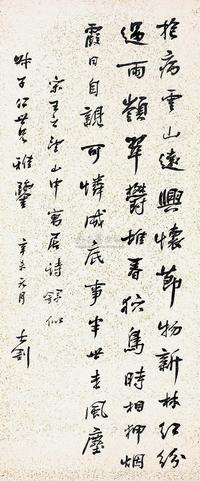 抱病云山远兴怀节物新林红纷
过雨岭翠郁堆春狖鸟时相押烟
霞日自亲可怜成底事半世走风尘
宋王之望山中寓居诗录似
味子仁世兄雅鉴 辛亥六月 士钊